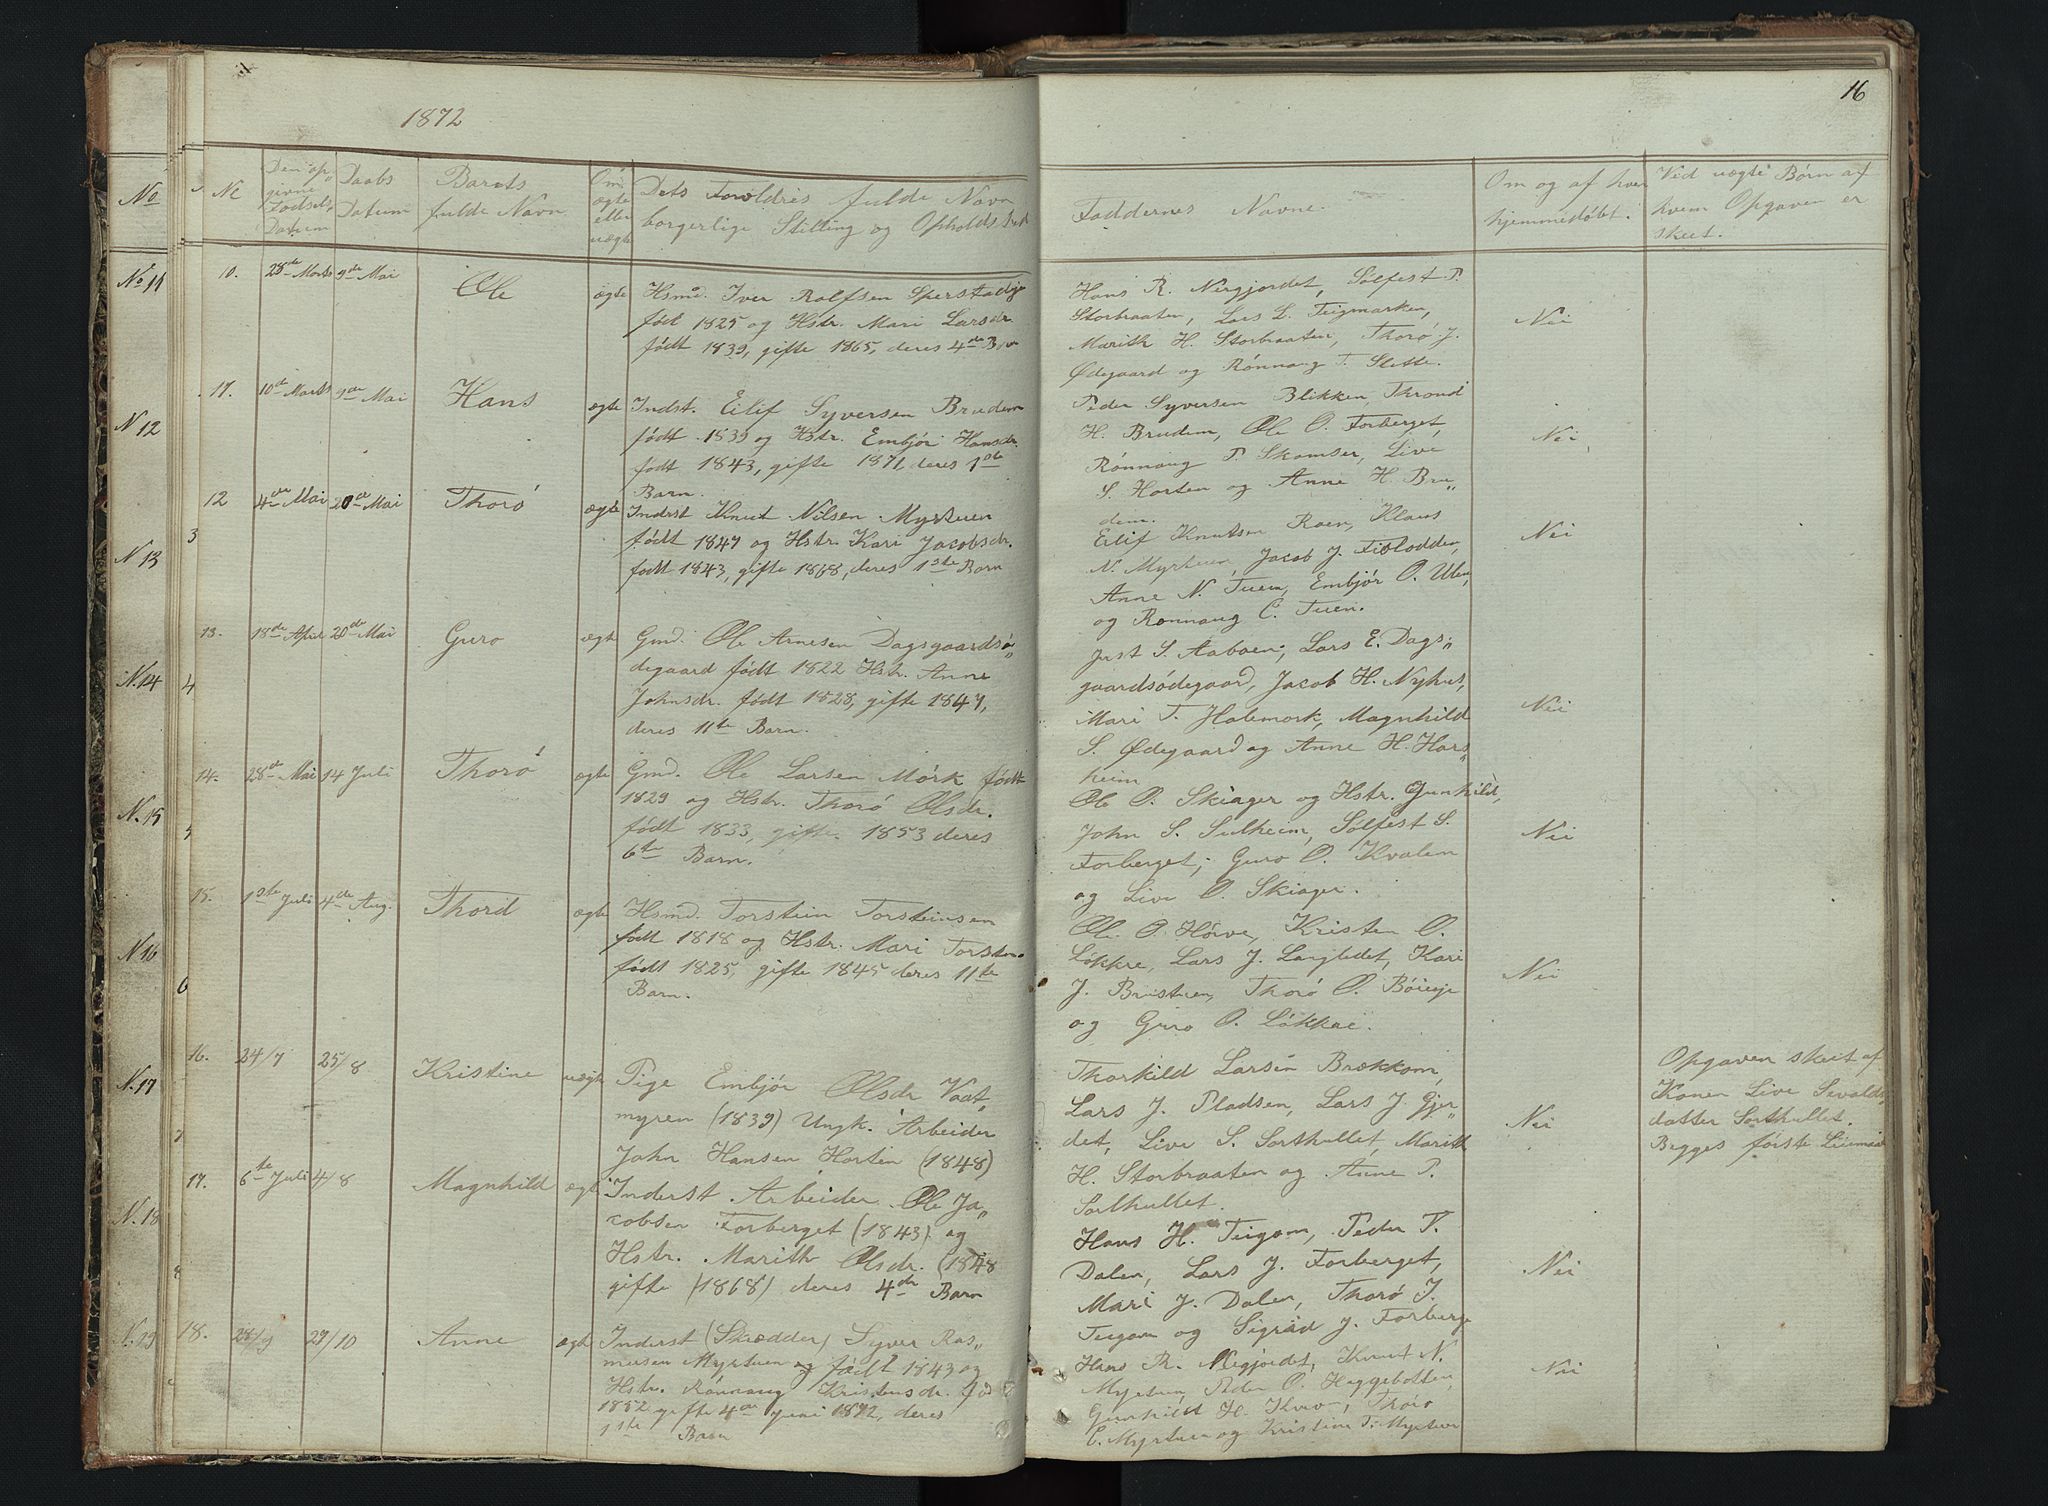 1872
16
No
No
Den op„
givne
Fødsels
Datum
Daabs
Datum
Barnets
fulde Navn
Om
ægte
eller
uægte
Dets Forældres fulde Navn
borgerlige Stilling og Opholdssted
Faddernes Navne.
Om og af hvem
hjemmedøbt.
Ved uægte Børn af
hvem Opgaven er
skeet.
No 11
N 12
N 13
N. 14
N. 15
N 16
N. 17
N. 18
N. 19
3
4
5
6
7
8
10. 28de Marts 9de Mai Ole ægte
Hsmd. Iver Rolfsen Sperstadeje
født 1825 og Hstr. Mari Larsdr.
født 1839, gifte 1865, deres 4de Barn
Hans R. Nergjordet, Sølfest P.
Storbraaten, Lars L. Teigmarken,
Marith H. Storbraaten, Thorø J.
Ødegaard og Rønnaug T. Slette.
Nei
11. 10de Marts 9de Mai Hans ægte
Indst. Eilif Syversen Brudem
født 1839 og Hstr. Embjør Hansdr.
født 1843, gifte 1871, deres 1ste
Barn.
Peder Syversen Blikken, Thrond
H. Brudem, Ole O. Forberget,
Rønnaug P. Skamser, Live
S. Horten og Anne H. Bru„
dem.
Nei
12 4de Mai 20de Mai Thorø ægte
Inderst Knut Nilsen Myrtuen
født 1847 og Hstr. Kari Jacobsdr.
født 1843, gifte 1868, deres 1ste Barn
Eilif Knutsen Roen, Klaus
N. Myrtuen, Jacob J. Fislodden,
Anne N. Tuen, Embjør O. Ulen,
og Rønnaug C. Tuen.
Nei
13. 18de April 20de Mai Guro ægte
Gmd. Ole Arnesen Dagsgaardsø„
degaard født 1822 Hstr. Anne
Johnsdr. født 1828, gifte 1847,
deres 11te Barn.
Jest S. Aaboen, Lars E. Dags„
gaardsødegaard, Jacob H. Nyhus,
Mari T. Halemork, Magnhild
S. Ødegaard og Anne H. Hars
heim
Nei
14. 28de Mai 14 Juli Thorø ægte
Gmd. Ole Larsen Mørk født
1829 og Hstr. Thorø Olsdr.
født 1833, gifte 1853 deres
6te Barn.
Ole O. Skiager og Hstr. Gunhild,
John S. Sulheim, Sølfest S.
Forberget, Guro O. Kvalem
og Live O. Skiager.
Nei
15. 1ste Juli 4de Aug. Thord ægte
Hsmd. Torstein Torsteinsen
født 1818 og Hstr. Mari Torstens
født 1825, gifte 1845 deres 11te
Barn.
Ole O. Hørve, Kristen O.
Løkkre, Lars J. Langledet, Kari
J. Brustuen, Thorø O. Bøieeje
og Guro O. Løkkae.
Nei
16. 24/7 25/8 Kristine uægte
Pige Embjør Olsdr Vaat„
myren (1839) Ungk. Arbeider
John Hansen Horten (1848)
Thorkild Larsen Brækkom,
Lars J. Pladsen, Lars J. Gjer„
det, Live S. Sorthullet, Marith
H. Storbraaten og Anne P.
Sorlhullet.
Nei
Opgaven skeet af
Konen Live Sevalds„
datter Sorthullet.
Begges første Leiemaal
17. 6te Juli 4/8 Magnhild ægte
Inderst Arbeider Ole Ja„
cobsen Forberget (1843) og
Hstr. Marith Olsdr. (1848
gifte (1868) deres 4de Barn
Hans H. Teigom, Peder P.
Dalen, Lars J. Forberget,
Mari J. Dalen, Thorø J.
Teigom og Sigrid J. Forberge
Nei
18. 28/9 29/10 Anne ægte
Inderst (Skrædder) Syver Ras„
musen Myrtuen og født 1843 og
Hstr. Rønnaug Kristensdr. fød
1852 gifte 4de Juni 1872, deres
1ste Barn
Hans R. Negjordet, Knut N.
Myrtuen, Peder O. Heggebotten,
Gunhild H. Kvo, Thorø
C. Myrtuen og Kristine P. Myrtuen
Nei